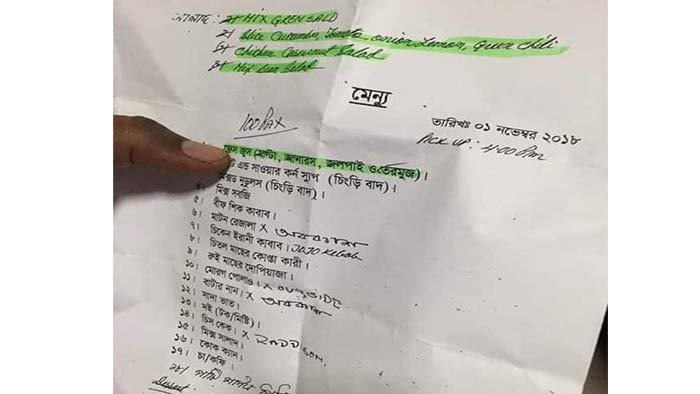 সালাদ: ১* MIX GREN SALD
২* Slice Cucumber, Tomato onion Lemon, Green Chili
৩* Chicken Caswnut Salad
৪* Mix Bean Salad
মেন্যু
100 PAX
তারিখঃ ০১ নভেম্বর ২০১৮
PICK UP: 4:00 Pm
জুস (মাল্টা, আনারস, জলপাই ও তরমুজ)।
এন্ড সাওয়ার কর্ন স্যুপ (চিংড়ি বাদ)।
নুডুলস (চিংড়ি বাদ)।
৪। মিক্স সবজি
৫। বীফ শিক কাবাব।
৬। মাটন রেজালা X
৭। চিকেন ইরানী কাবাব। JOJO Kebab
৮। চিতল মাছের কোপ্তা কারী।
৯। রুই মাছের দোপিয়াজা।
১০। মোরগ পোলাও। X
১১। বাটার নান। X
১২। সাদা ভাত।
১৩। দই (টক/মিষ্টি)।
১৪। চিস কেক। X RADDISON.
১৫। মিক্স সালাদ।
১৬। কোক ক্যান।
১৭। চা/কফি।
১৮।
Dessert